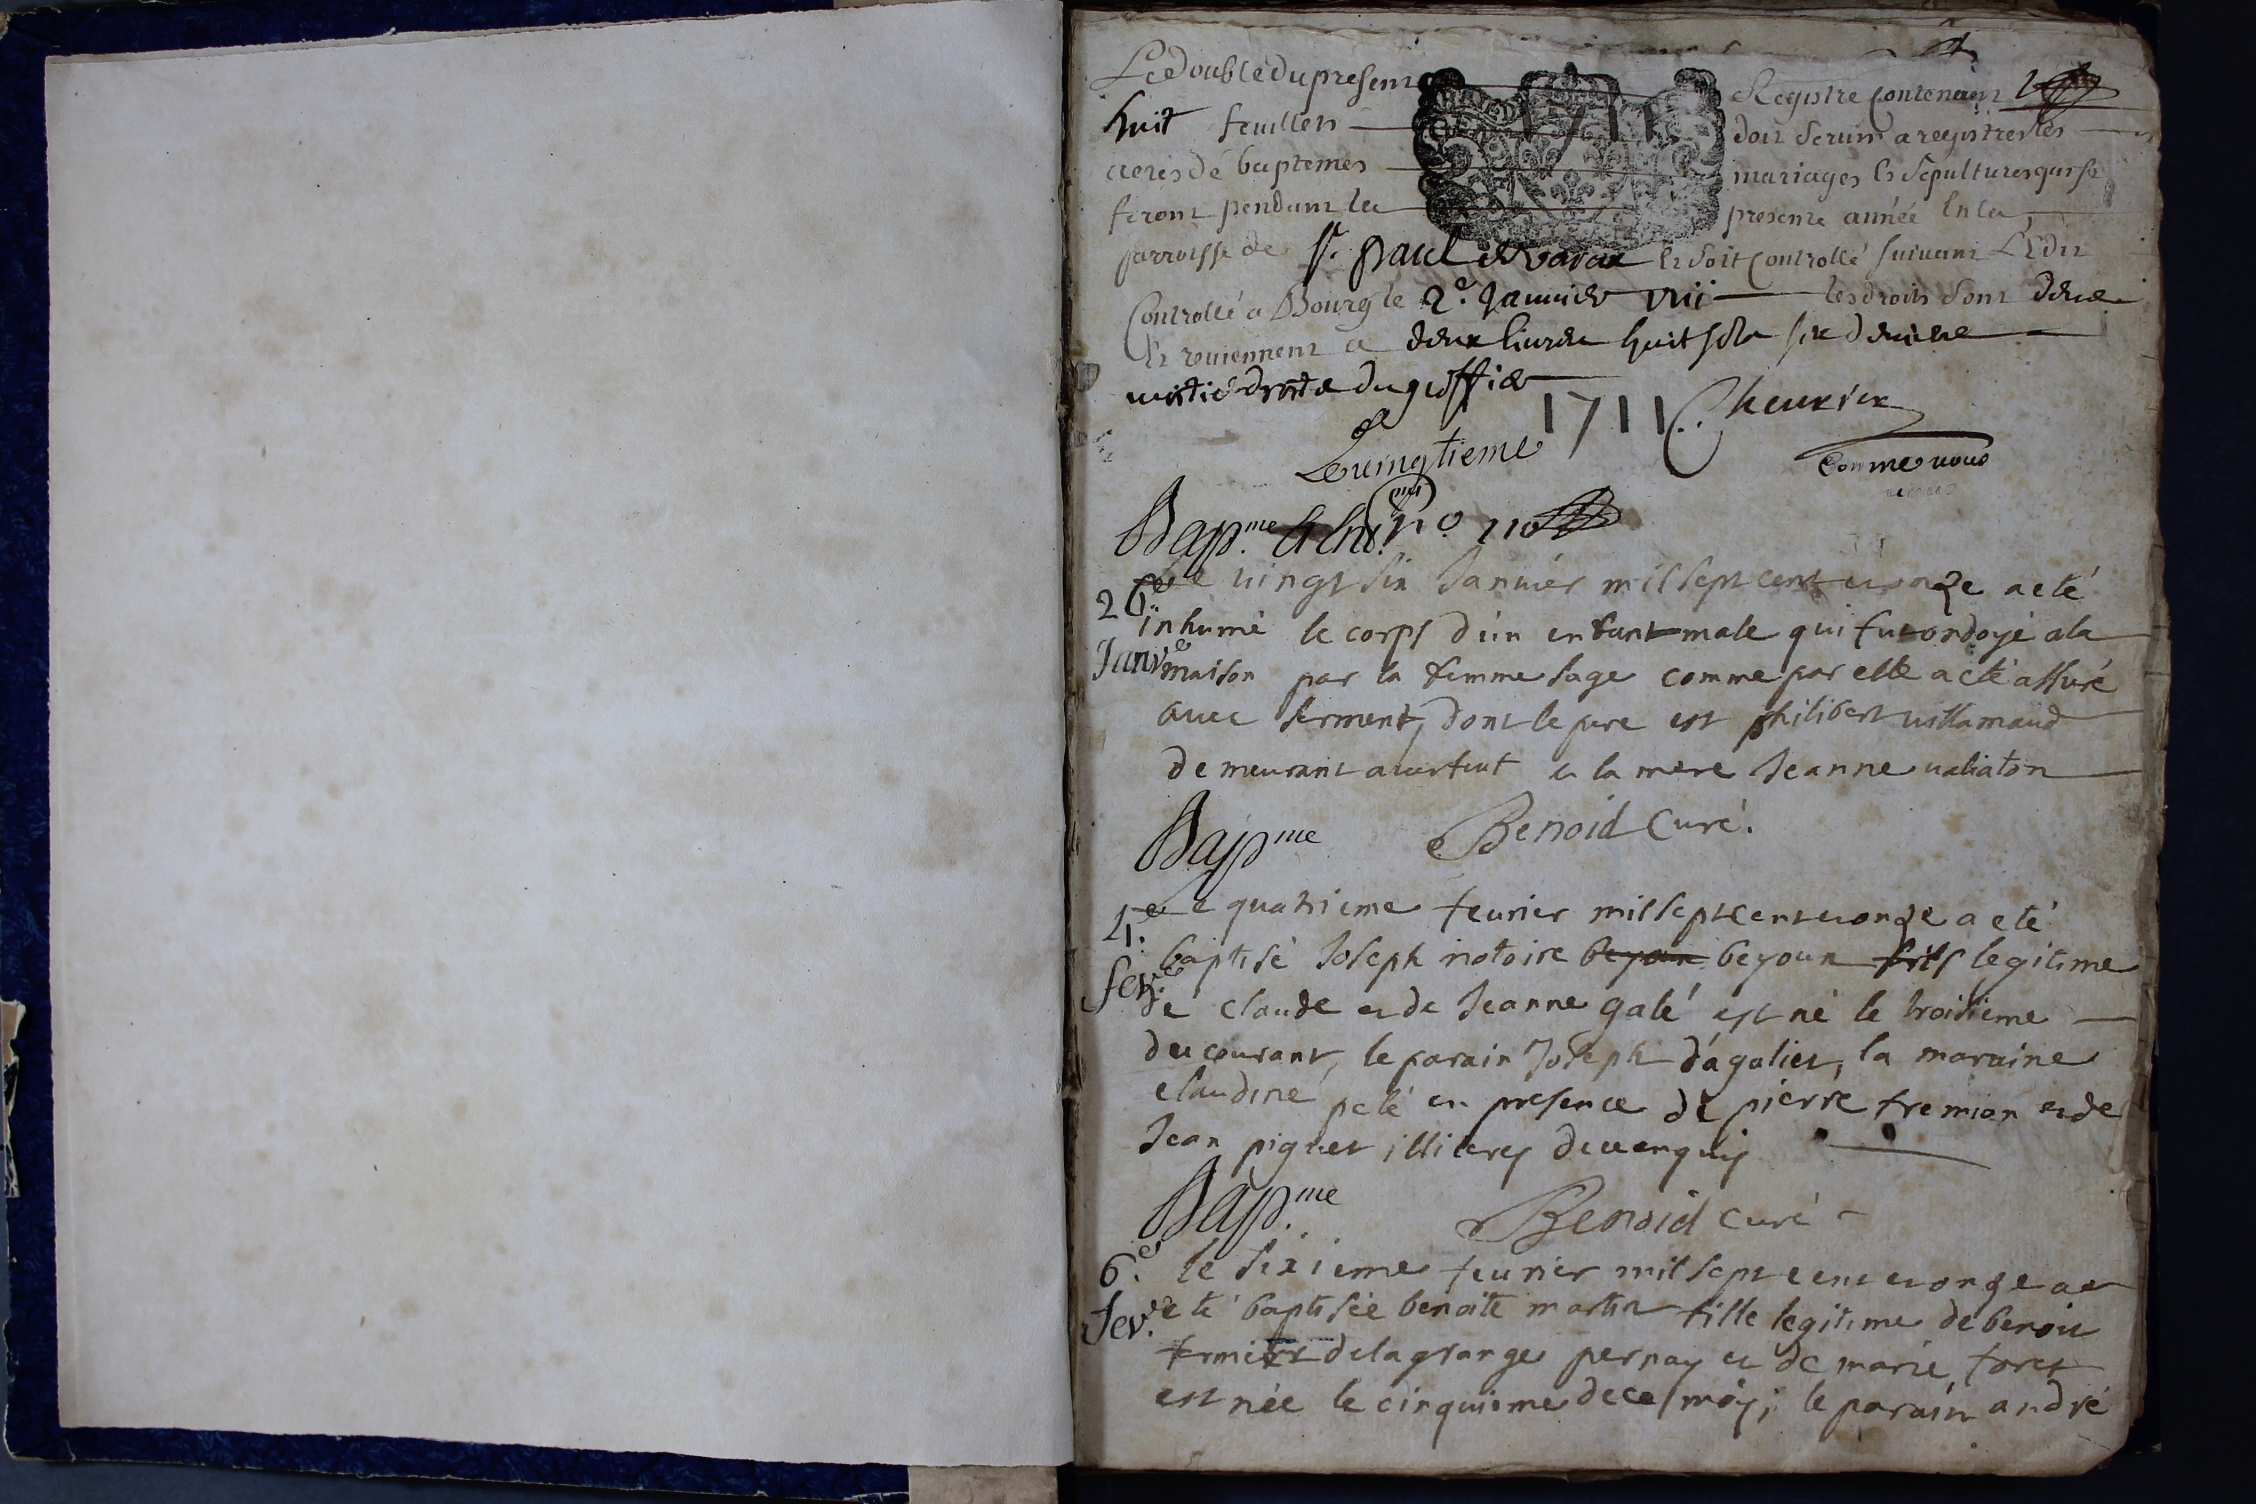 Le Double du present Registre Contenant
huit feuillets doit servir a registrer les
actes de baptemes mariages et Sepultures qui se
feront pendant la presente année En la
parroisse de St. paul de varax Et doit Controllé suivant L'Edit
Controllé a Bourg le 2e. Janvier les droits sont deüe
Et reviennent a deux livres huit sols six deniers
moitié droite du greffier
1711. Cheurier
Le vingtieme Comme nous
Bap.me
Le vingt six Janvier mil sept cent et onze a eté
26e. Janv.e
inhumé le corps d'un enfant male qui fut ondoyé a la
maison par la femme sage comme par elle a eté assuré
avec serment, dont le pere est philibert villamaud
demeurant et la mere Jeanne valiaton
Benoid Curé.
Bap.me
Le quatrieme feurier mil sept cent et onze a eté
4e. fev.e
baptisé Joseph notoire beyoun beyoun fils legitime
de claude et de Jeanne galé est né le troisieme
du courant, le parain Joseph d'agalier, la maraine
claudine pelé en presence de pierre fremion et de
Jean piguet illiteres
Benoid curé
Bap.me
6e. Fev.e
le sixieme feurier mil sept cent et onze a
eté baptisée benoite martin fille legitime de benoit
fermier de la grange pernay et de marie foret
est née le cinquieme de ce moy; le parain andré